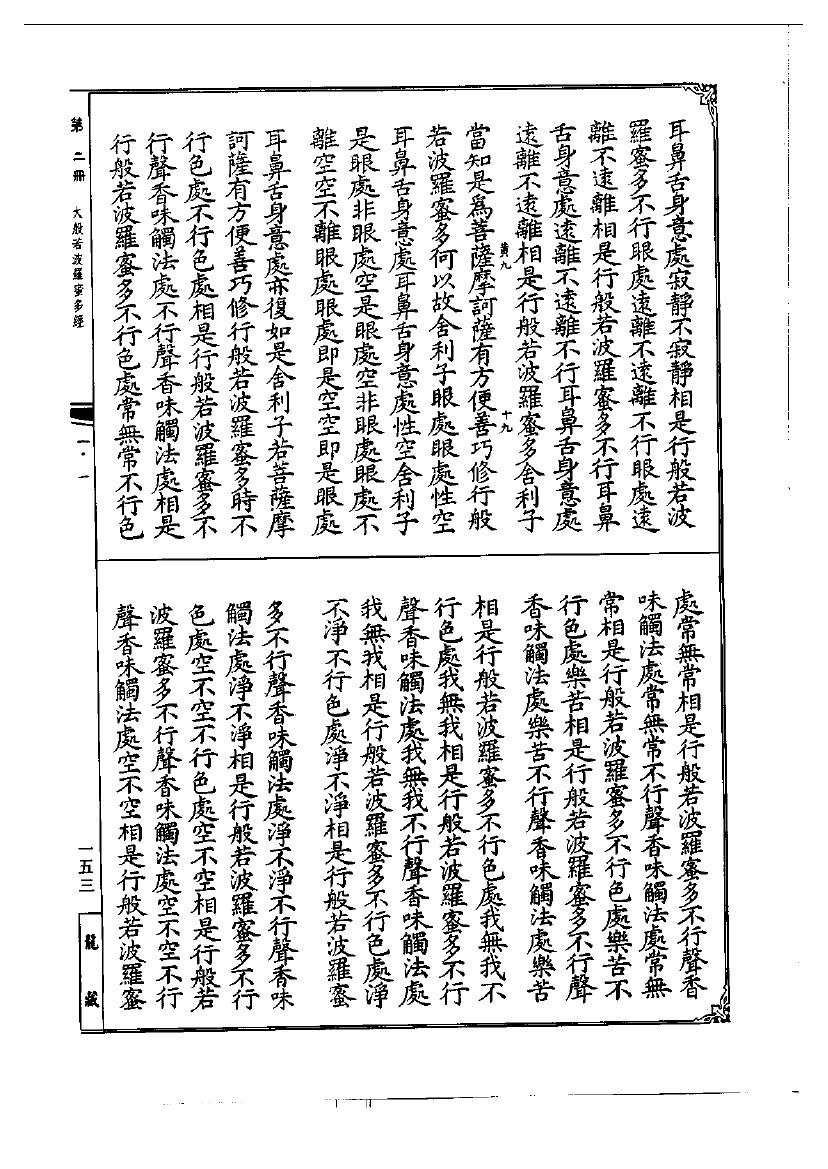 耳鼻舌身意處寂靜不寂靜相是行般若波
羅蜜多不行眼處遠離不遠離不行眼處遠
離不遠離相是行般若波羅蜜多不行耳鼻
舌身意處遠離不遠離不行耳鼻舌身意處
遠離不遠離相是行般若波羅蜜多舍利子
黃九
十九
當知是為菩薩摩訶薩有方便善巧修行般
若波羅蜜多何以故舍利子眼處眼處性空
耳鼻舌身意處耳鼻舌身意處性空舍利子
是眼處非眼處空是眼處空非眼處眼處不
離空空不離眼處眼處即是空空即是眼處
耳鼻舌身意處亦復如是舍利子若菩薩摩
訶薩有方便善巧修行般若波羅蜜多時不
行色處不行色處相是行般若波羅蜜多不
行聲香味觸法處不行聲香味觸法處相是
行般若波羅蜜多不行色處常無常不行色
處常無常相是行般若波羅蜜多不行聲香
味觸法處常無常不行聲香味觸法處常無
常相是行般若波羅蜜多不行色處樂苦不
行色處樂苦相是行般若波羅蜜多不行聲
香味觸法處樂苦不行聲香味觸法處樂苦
相是行般若波羅蜜多不行色處我無我不
行色處我無我相是行般若波羅蜜多不行
聲香味觸法處我無我不行聲香味觸法處
我無我相是行般若波羅蜜多不行色處淨
不淨不行色處淨不淨相是行般若波羅蜜
多不行聲香味觸法處淨不淨不行聲香味
觸法處淨不淨相是行般若波羅蜜多不行
色處空不空不行色處空不空相是行般若
波羅蜜多不行聲香味觸法處空不空不行
聲香味觸法處空不空相是行般若波羅蜜
第二冊 大般若波羅蜜多經
一·一
一五三
龍藏